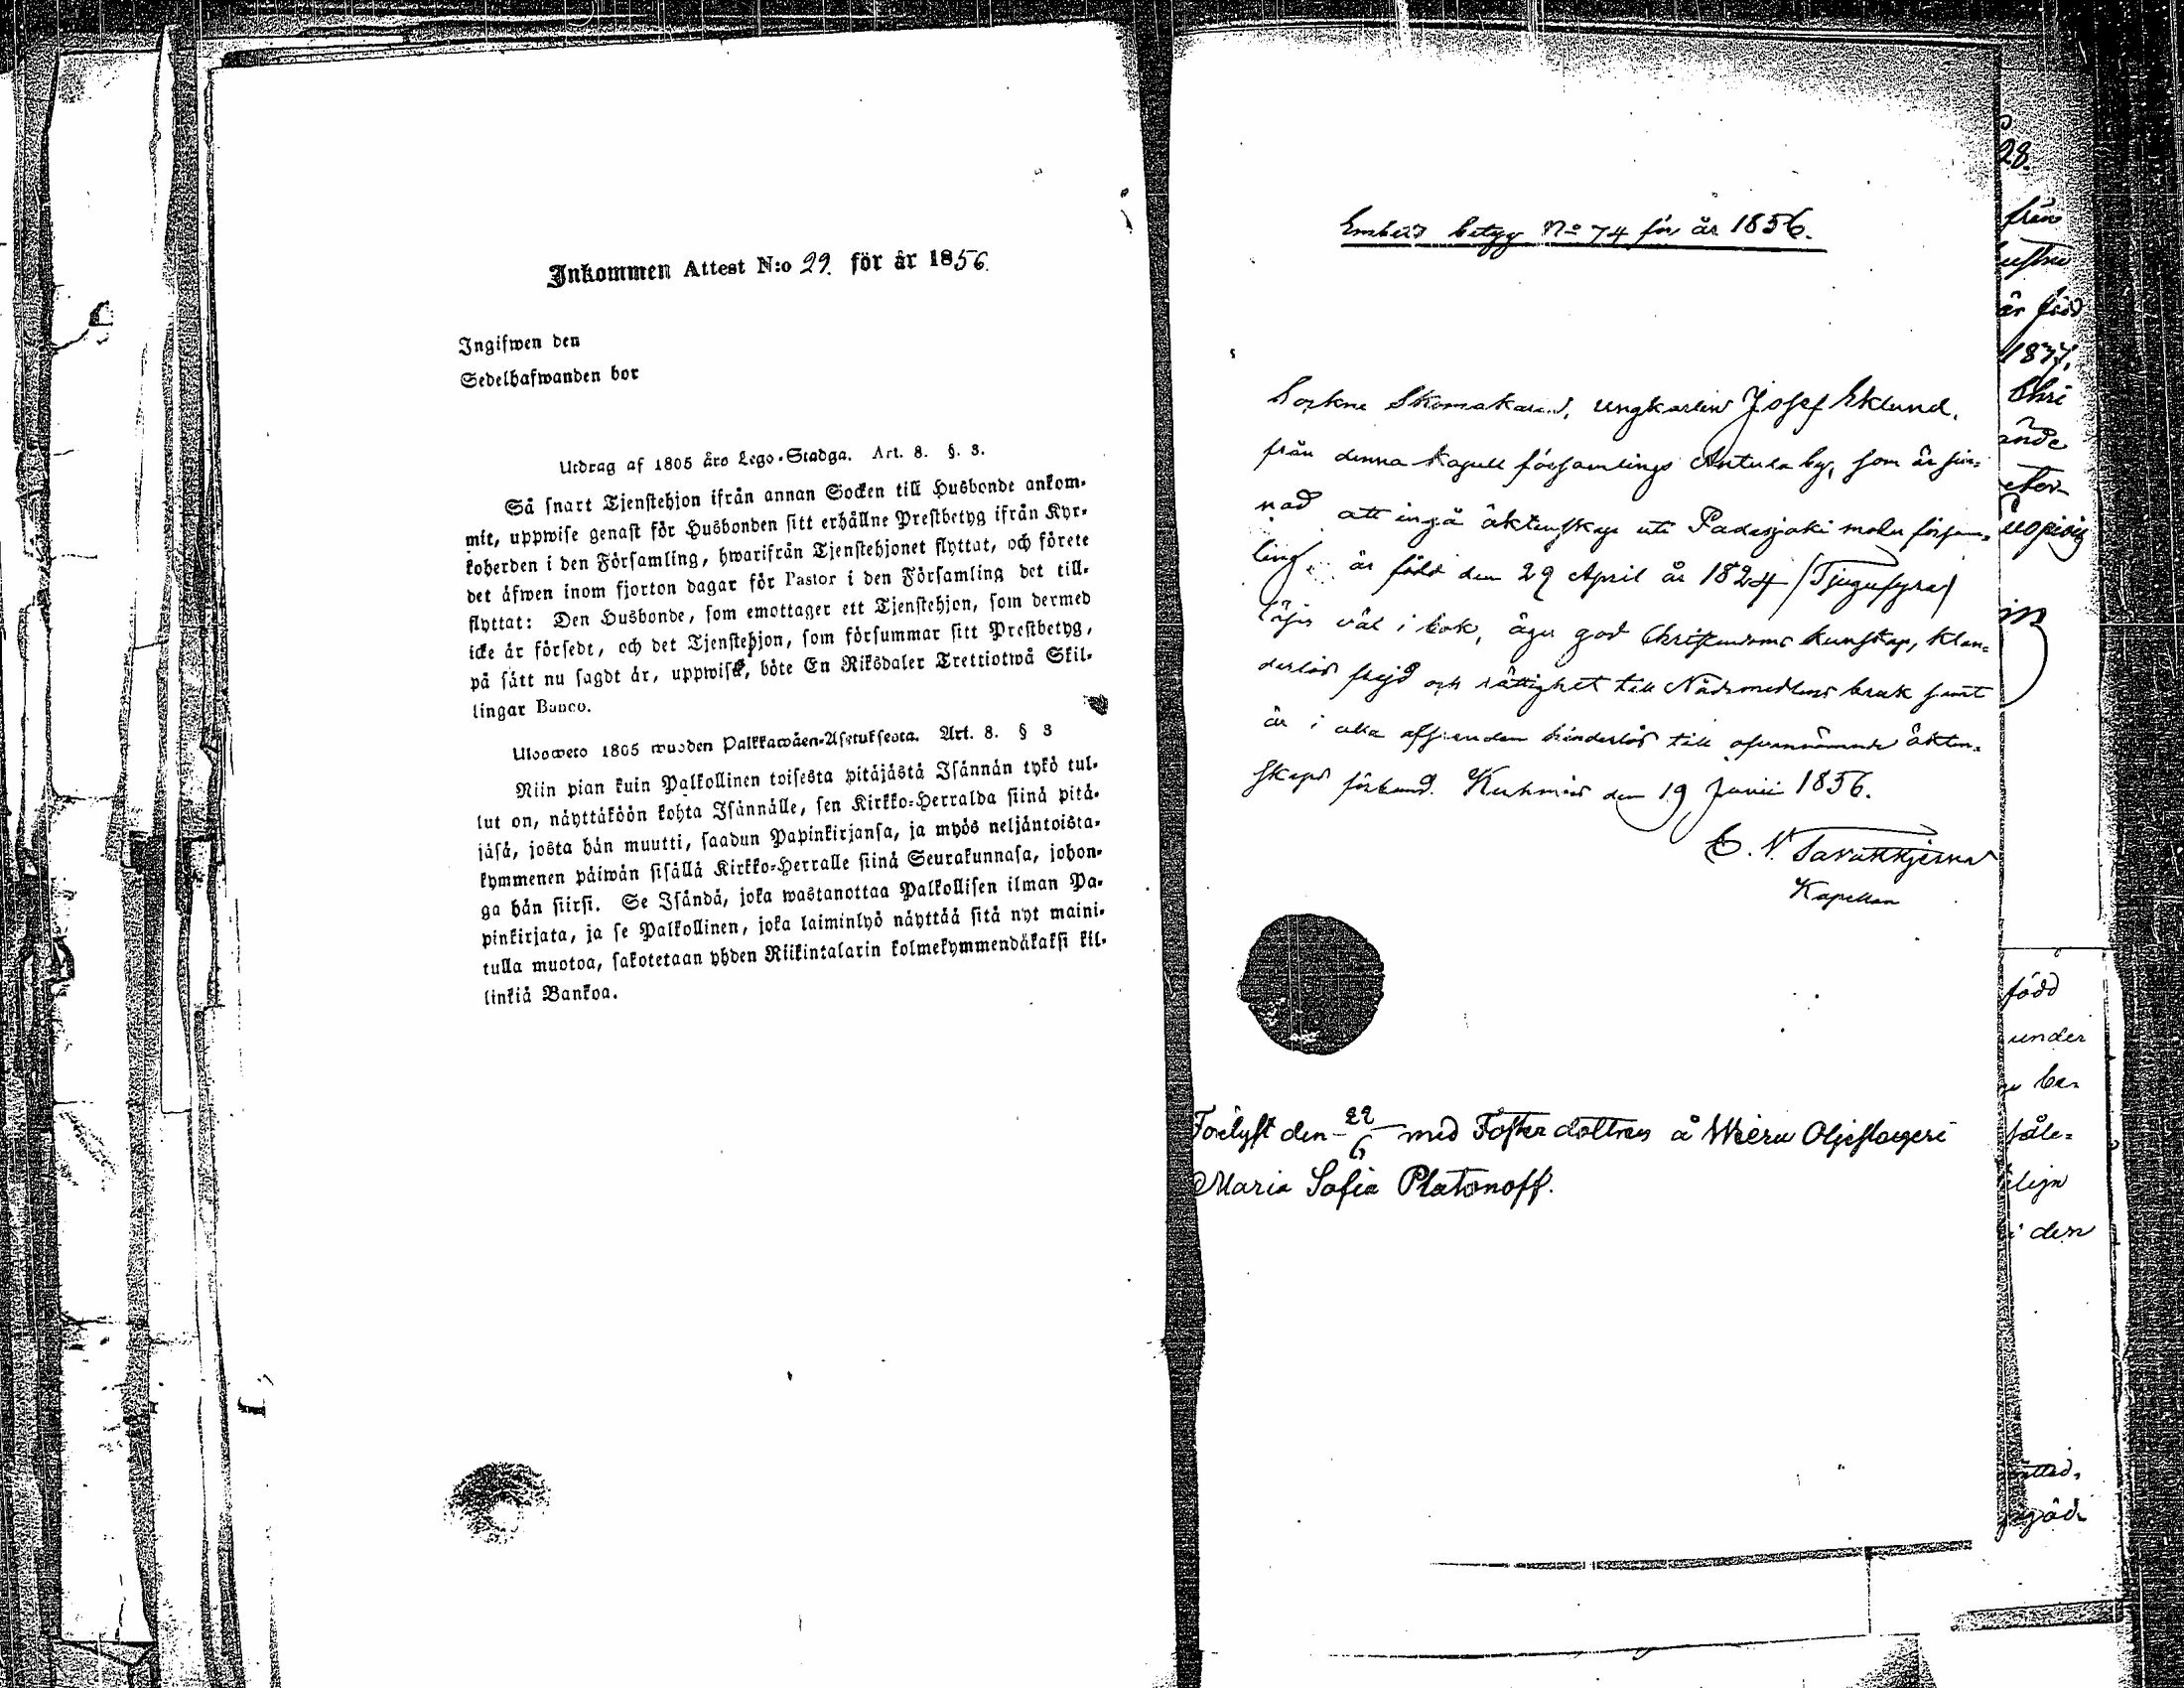 Inkommen Attest N:o 29. för år 1856.
Ingifwen den
Sedelhafwanden bor
Utdrag af 1805 års Lego-Stadga. Art. 8. §. 3.
Så snart Tjenstehjon ifrån annan Socken till Husbonde ankom-
mit, uppwise genast för Husbonden sitt erhållne Prestbetyg ifrån Kyr-
koherden i den Församling, hwarifrån Tjenstehjonet flyttat, och förete
det åfwen inom fjorton dagar för Pastor i den Församling det till-
flyttat: Den Husbonde, som emottager ett Tjenstehjon, som dermed
icke är försedt, och det Tjenstehjon, som försummar sitt Prestbetyg,
på sätt nu sagdt är, uppwisa, böte En Riksdaler Trettiotwå Skil-
lingar Banco.
Uloosweto 1805 wuoden Palkkawäen-Asetuksesta. Art. 8. § 3
Niin pian kuin Palkollinen toisesta pitäjästä Isännän tykö tul-
lut on, näyttäköön kohta Isännälle, sen Kirkko-Herralda siinä pitä-
jäsä, josta hän muutti, saadun Papinkirjansa, ja myös neljäntoista-
kymmenen päiwän sisällä Kirkko-Herralle siinä Seurakunnasa, johon-
ga hän siirsi. Se Isändä, joka wastanottaa Palkollisen ilman Pa-
pinkirjata, ja se Palkollinen, joka laiminlyö näyttää sitä nyt maini-
tulla muotoa, sakotetaan yhden Riikintalarin kolmekymmendäkaksi kil-
linkiä Bankoa.
Embets betyg No 74 för år 1856.
Sockne Skomakaren, ungkarlen Josef Eklund,
från denna Kapell församlings Antula by, som är sin-
nad att ingå äktenskap uti Padasjoki moder försam-
ling, är född den 29 April år 1824 /Tjugufyra/
läser väl i bok, äger god Christendoms kunskap, klan-
derlös frejd och rättighet till Nådemedlens bruk samt
är i alla afseenden hinderlös till ofvannämnde äkten-
skaps förbund. Kuhmois den 19 Junii 1856.
C. N.
Kapellan
Förelyst den 22/6 med Fosterdottren å Wieru Oljeslageri
Maria Sofia Platonoff.
28.
från
är född
1837,
Chri
ande
född
under
be-
i den